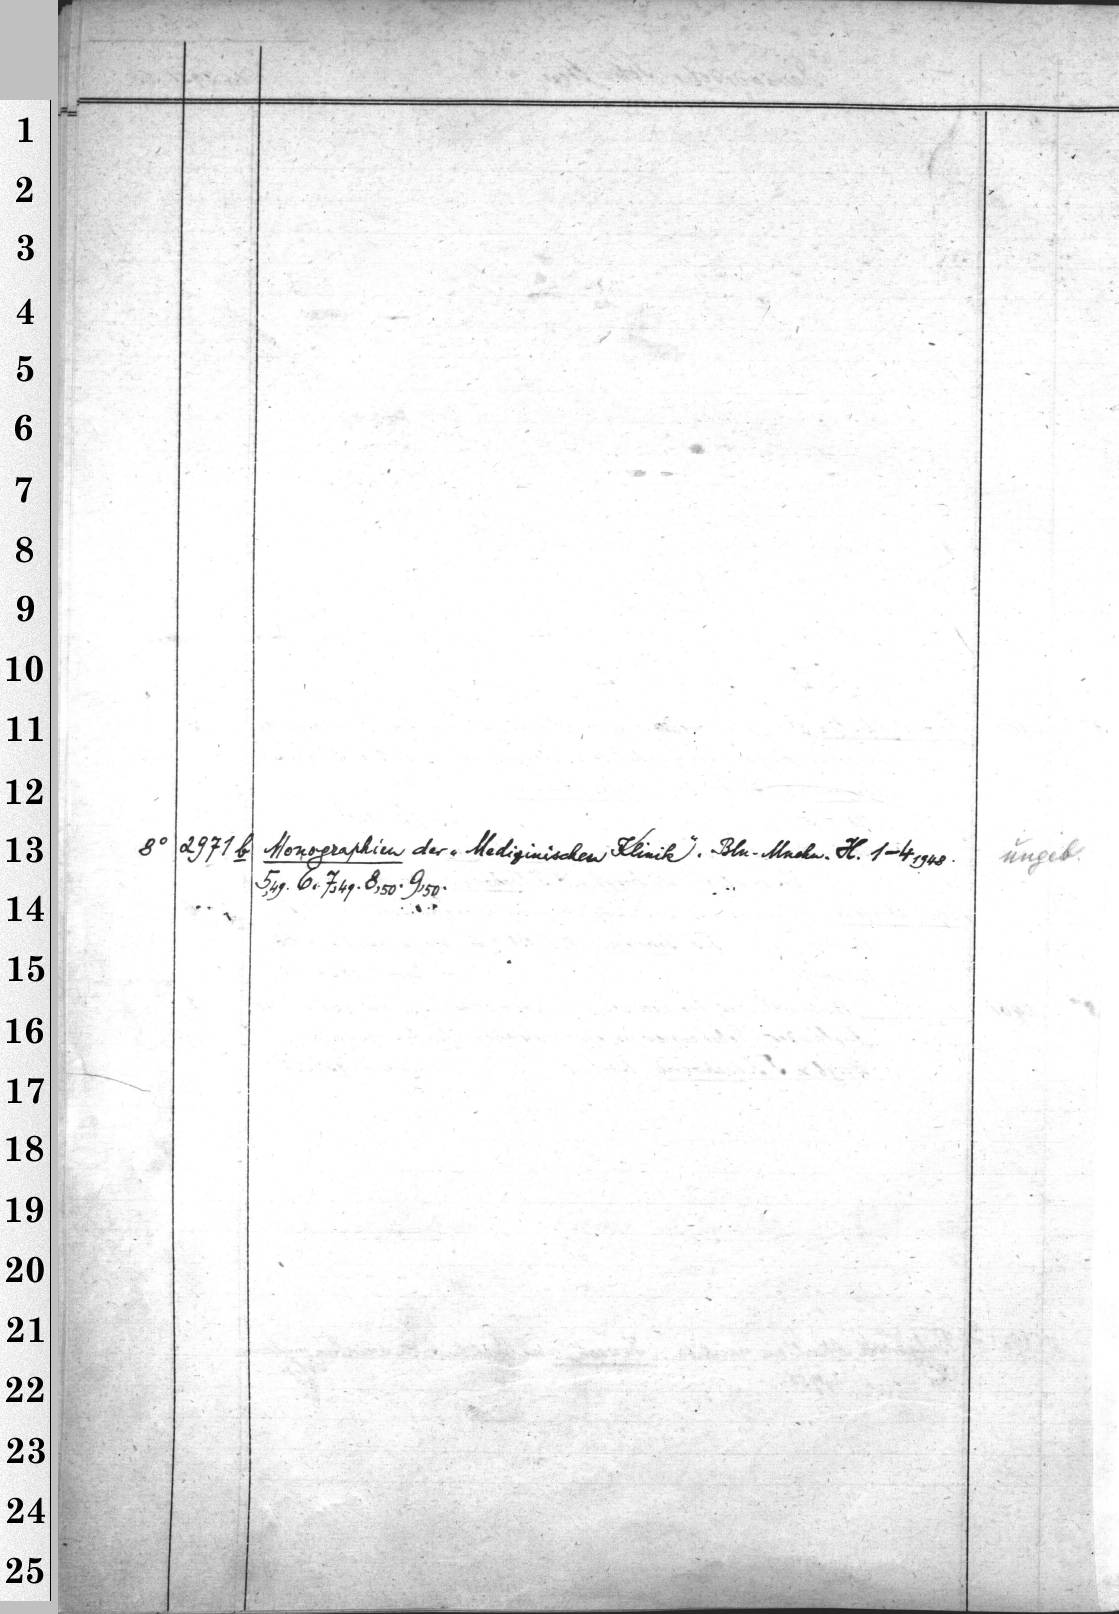 1
2
3
4
5
6
7
8
9
10
11
12
13
8° 2971 b Monographien der „Medizinischen Klinik". Bln.-Mnchn. H. 1–4,1948. ungeb.
5,49. 6. 7,49. 8,50. 9,50.
14
15
16
17
18
19
20
21
22
23
24
25